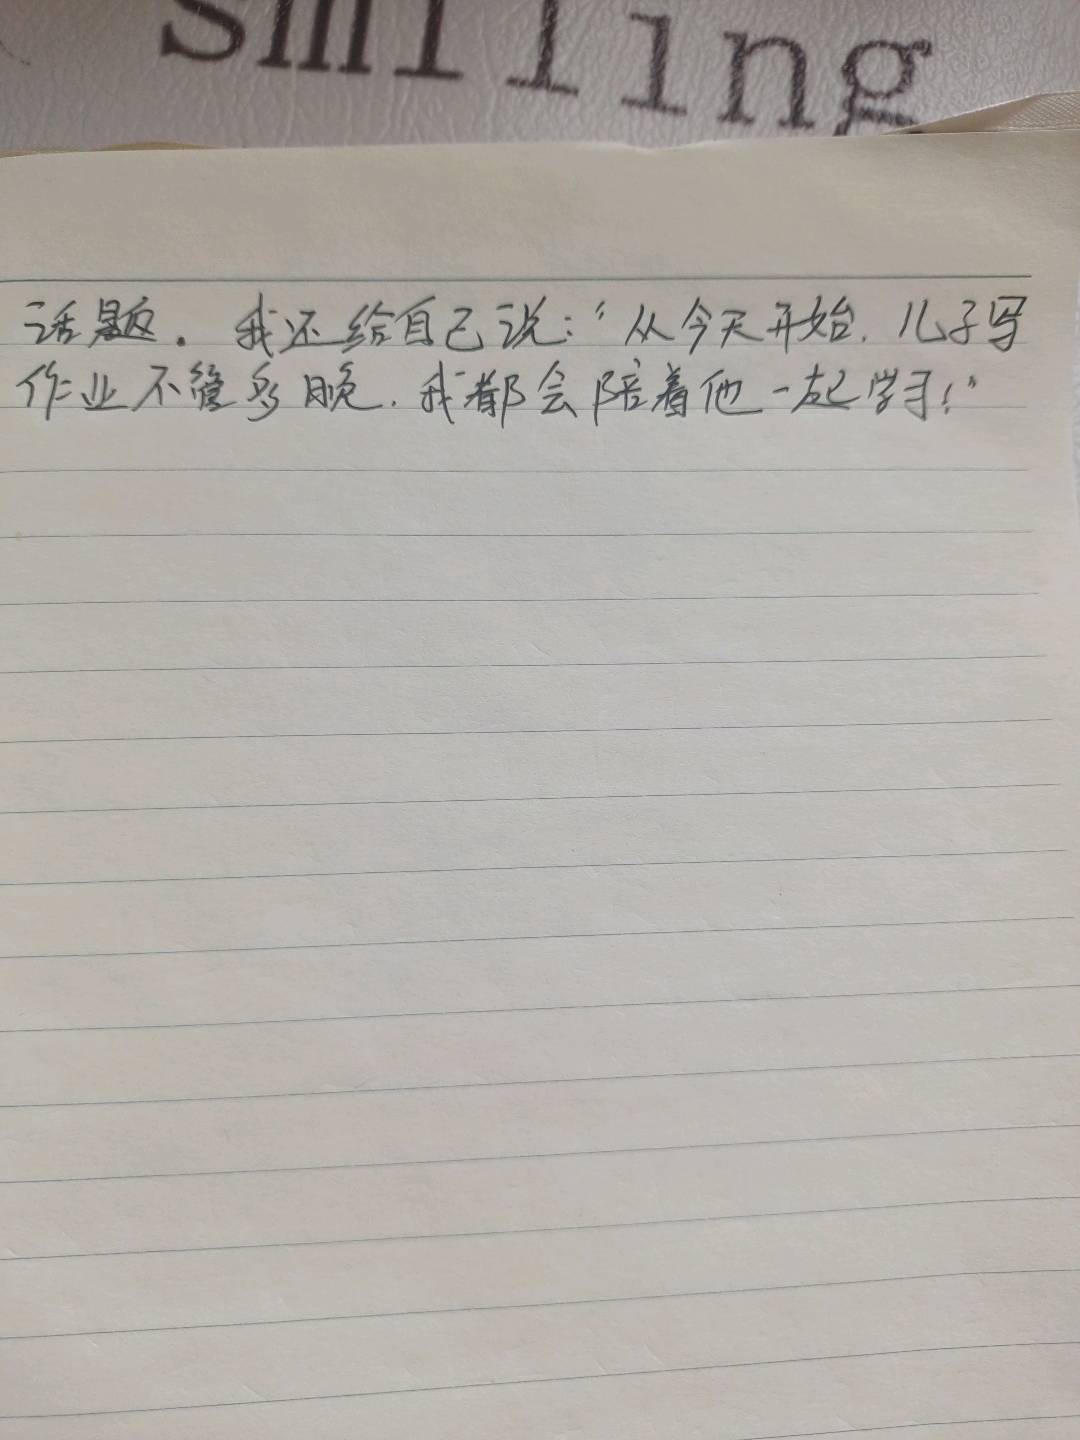 smiling
话题. 我还给自己说:“从今天开始, 儿子写
作业不管多晚, 我都会陪着他一起学习!”